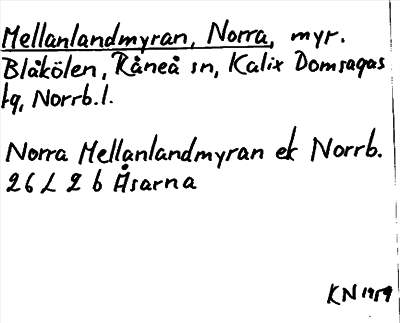 Mellanlandmyran, Norra, myr.
Blåkölen, Råneå sn, Kalix Domsagas
tg, Norrb.l.
Norra Mellanlandmyran ek Norrb.
26 L 2 b Åsarna
KN 1959